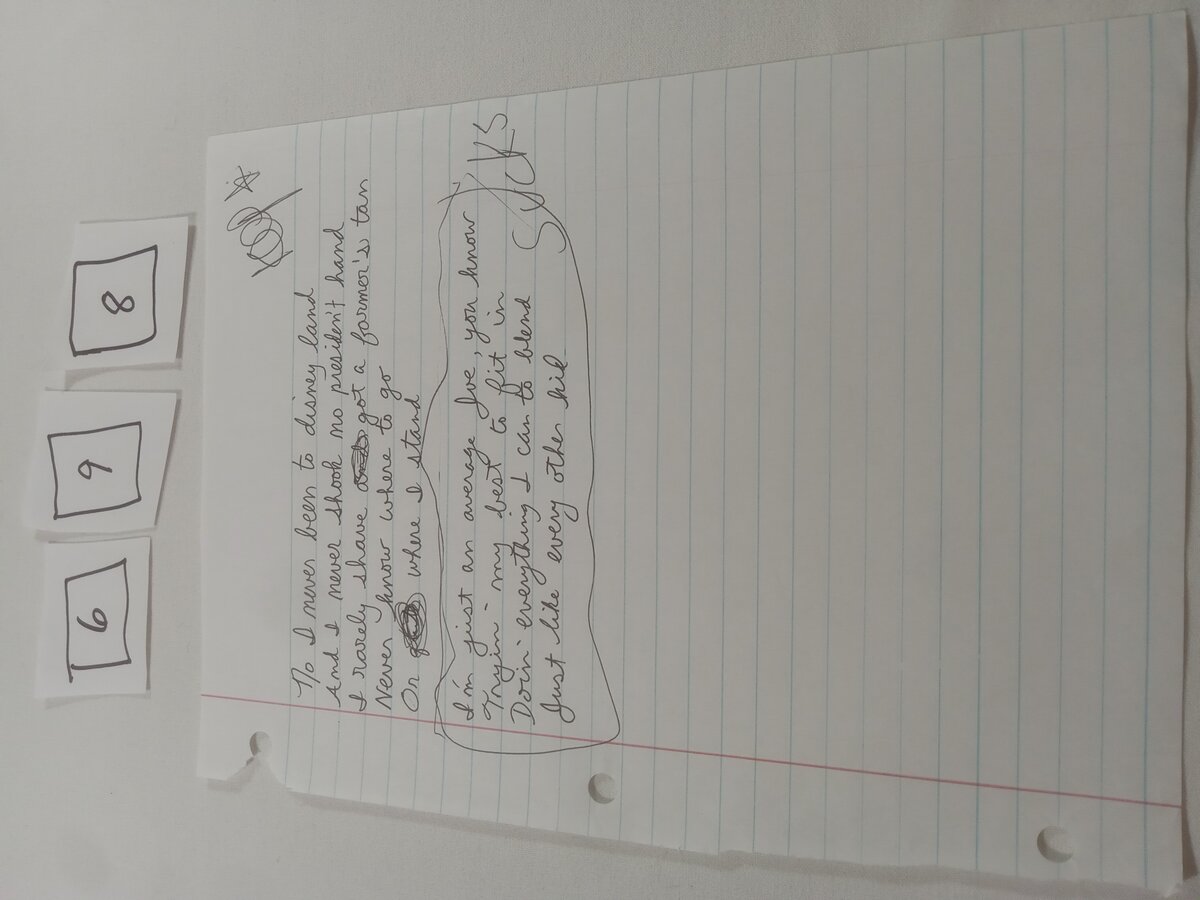 6 9 8
No I never been to disney land
And I never shook no presiden't hand
I rarely shave got a farmer's tan
Never know where to go
Or where I stand
I'm just an average Joe, you know
Tryin' my best to fit in
Doin' everything I can to blend
Just like every other kid
SUCKS